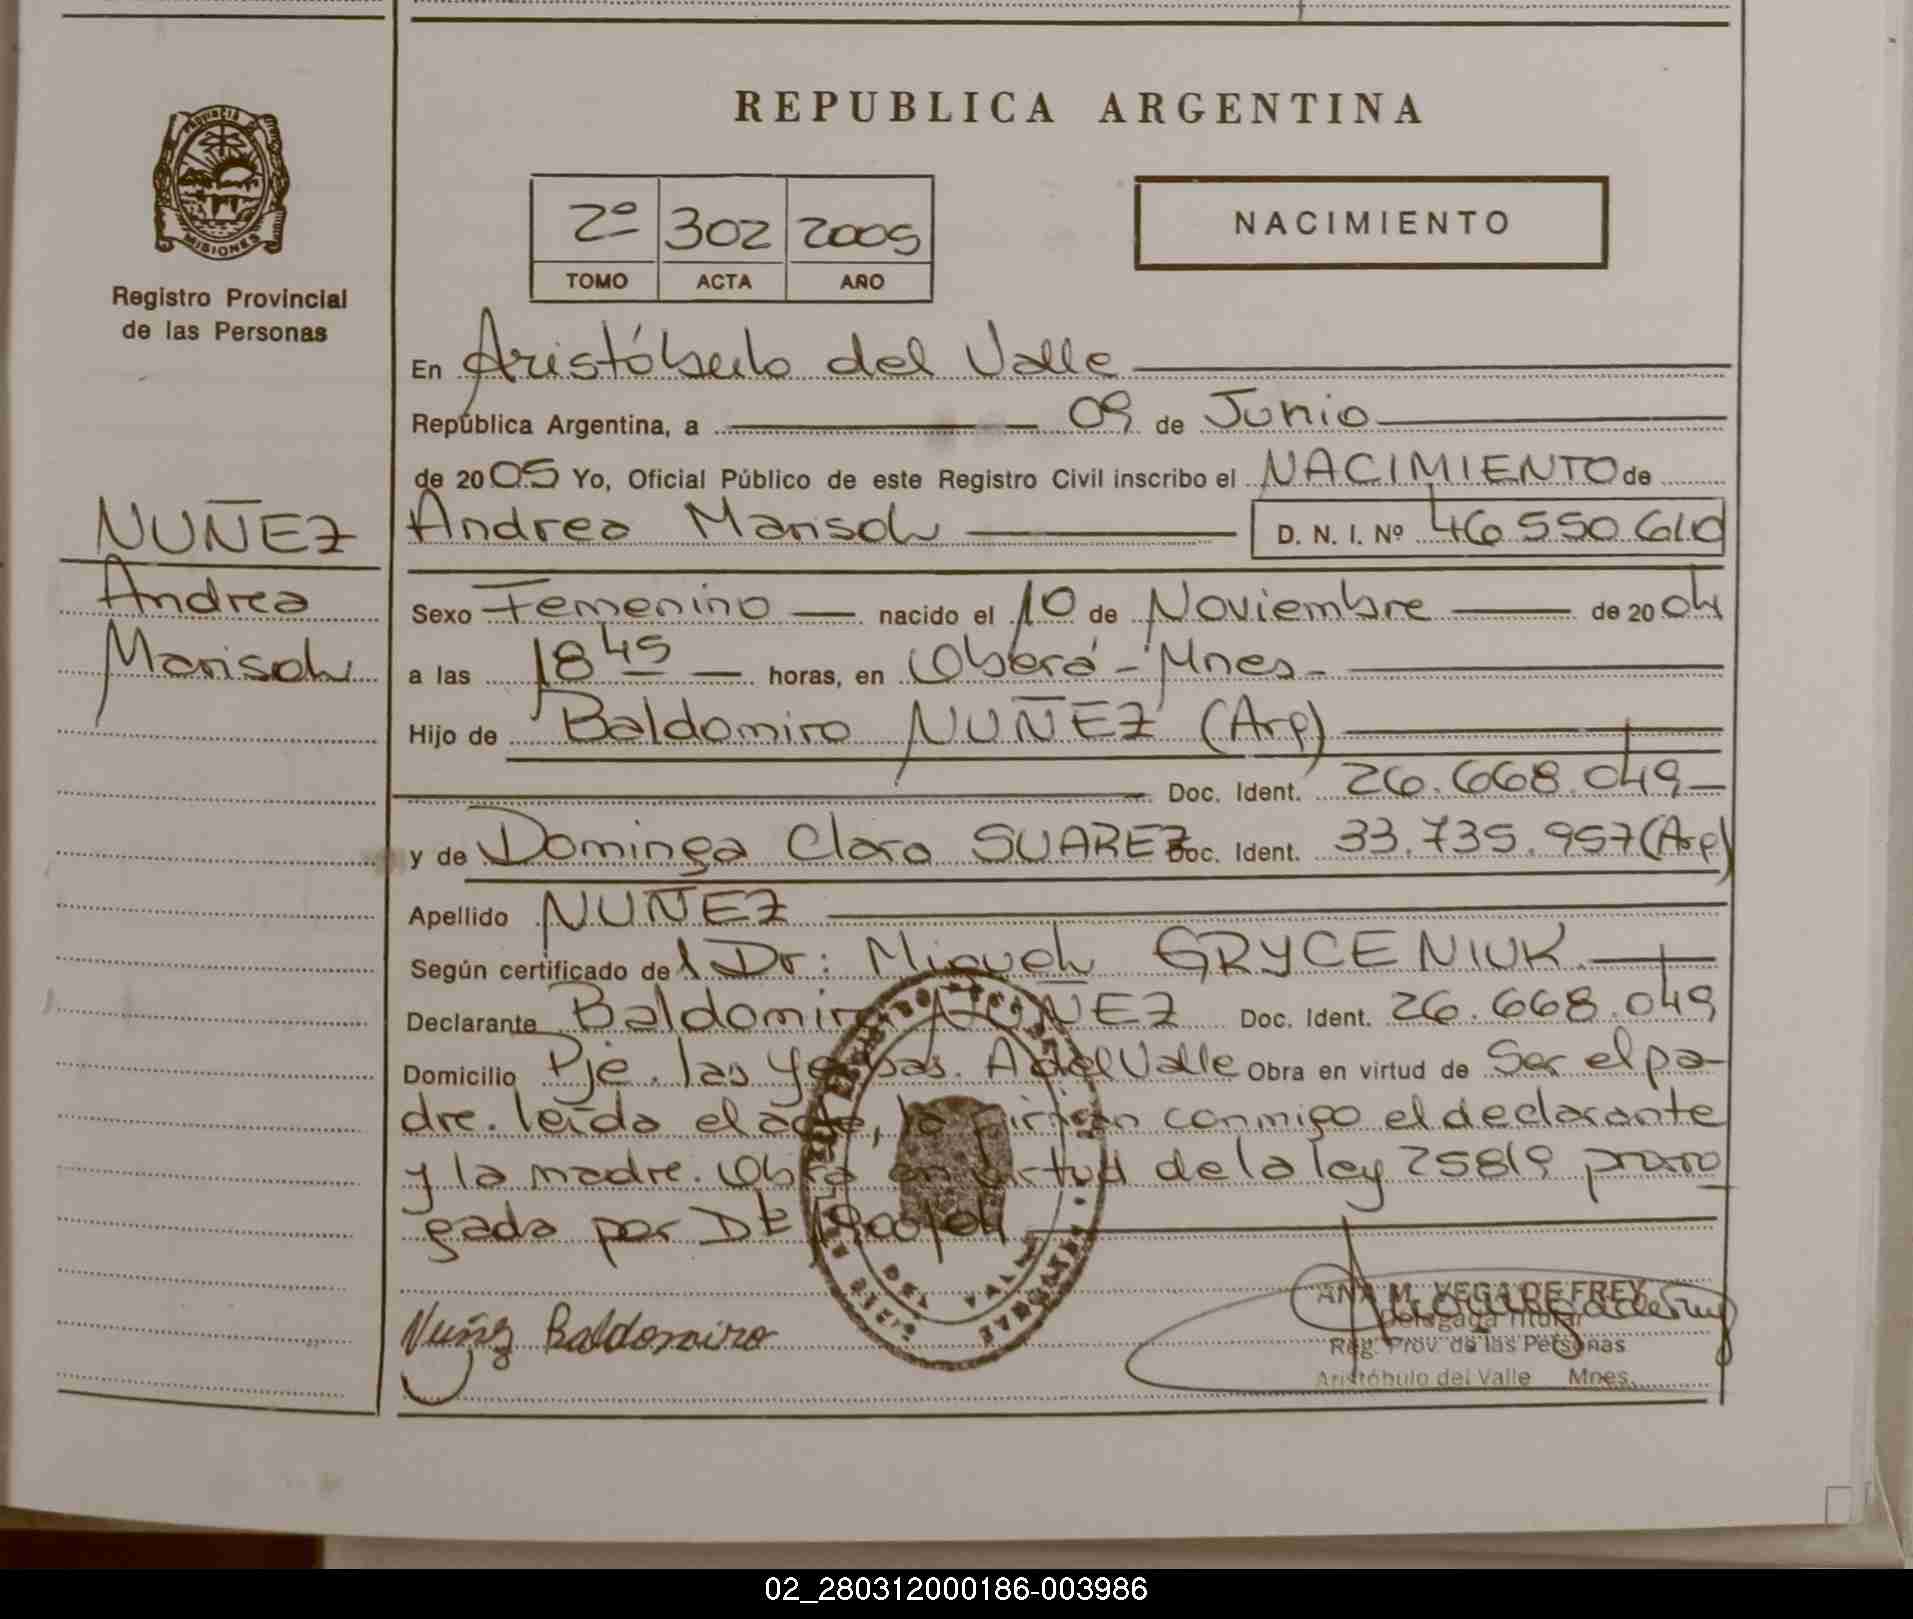 REPUBLICA ARGENTINA
PROVINCIA DE
MISIONES
Registro Provincial
de las Personas
2º 302 2005
TOMO ACTA AÑO
NACIMIENTO
En Aristóbulo del Valle
República Argentina, a 09 de Junio
de 2005 Yo, Oficial Público de este Registro Civil inscribo el NACIMIENTO de
NUÑEZ
Andrea
Marisol
Andrea Marisol D. N. I. Nº 46.550.610
Sexo Femenino nacido el 10 de Noviembre de 2004
a las 18 45 horas, en Oberá - Mnes -
Hijo de Baldomiro NUÑEZ (Arg)
Doc. Ident. 26.668.049
y de Dominga Clara SUAREZ Doc. Ident. 33.735.957 (Arg)
Apellido NUÑEZ
Según certificado del Dr: Miguel GRYCENIUK
Declarante Baldomiro NUÑEZ Doc. Ident. 26.668.049
Domicilio Pje. las Yerbas. A del Valle Obra en virtud de Ser el pa-
dre. leída el acta, la firman conmigo el declarante
y la madre. Obra en virtud de la ley 25819 prorro
gada por Dt 1900/04
Nuñez Baldomiro
ANA M. VEGA DE FREY
Delegada Titular
Reg. Prov. de las Personas
Aristóbulo del Valle Mnes.
DEL VALLE
02_280312000186-003986